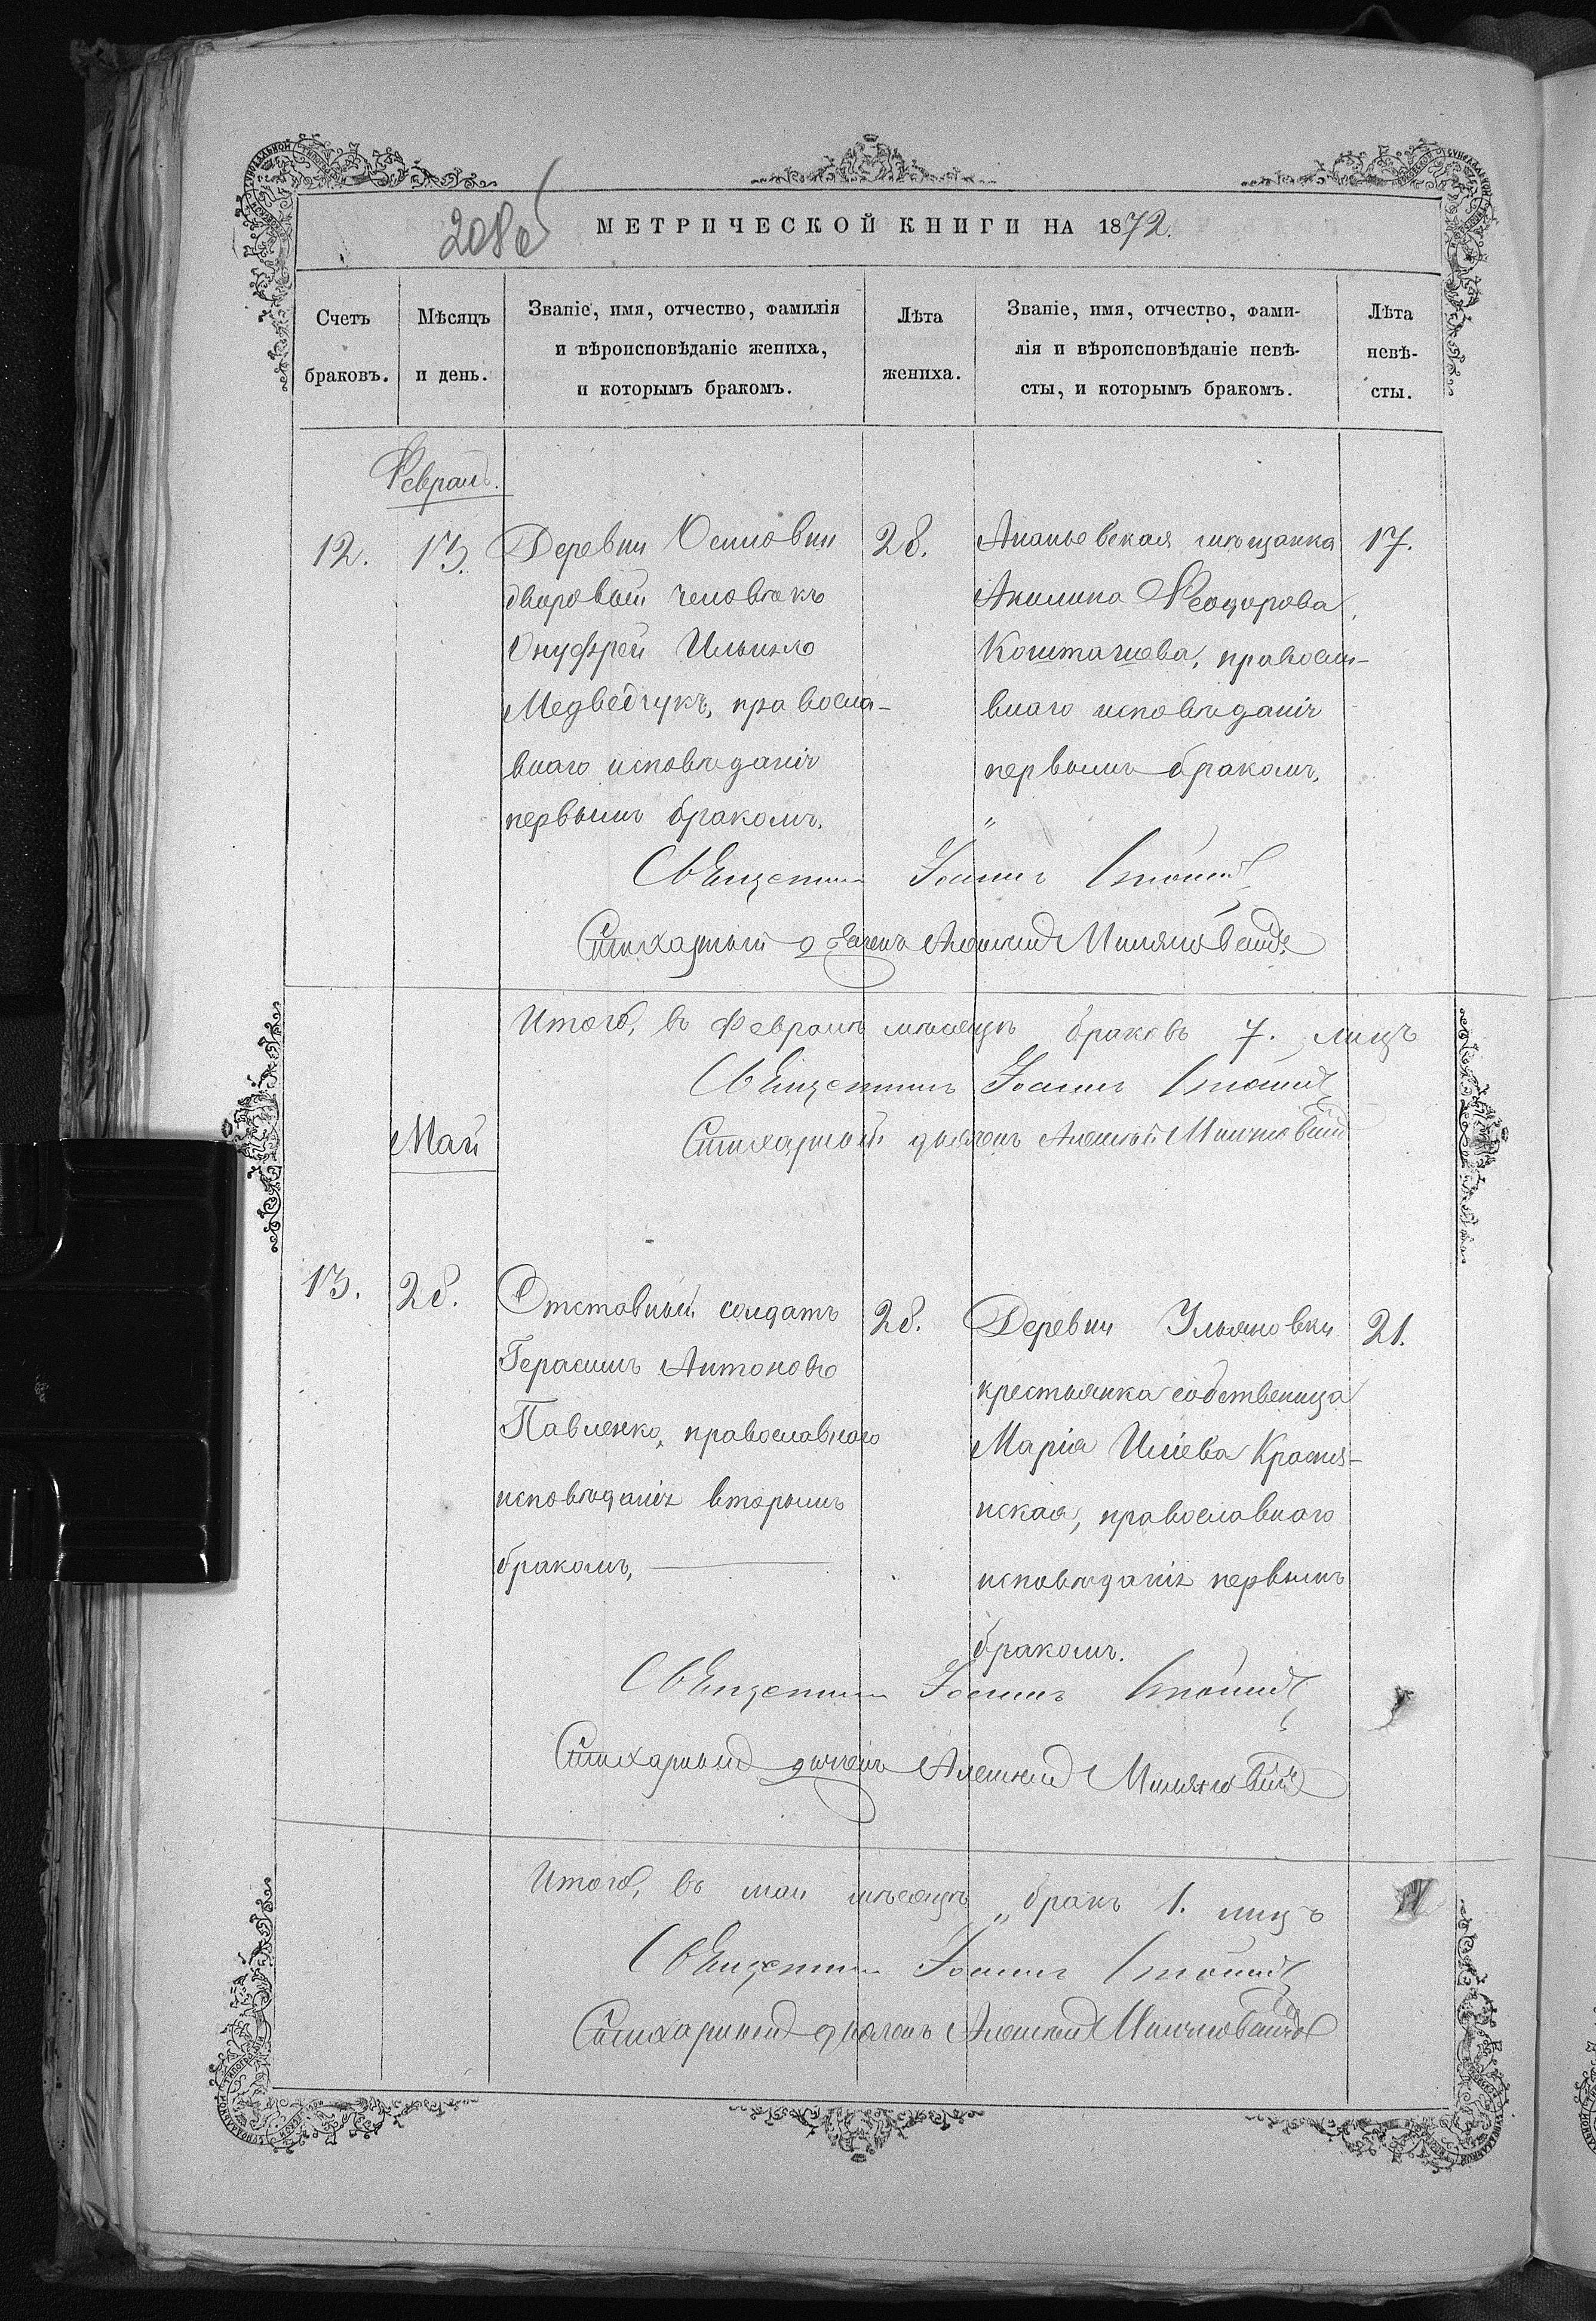 208 об
МЕТРИЧЕСКОЙ КНИГИ НА 1872.
Счетъ браковъ.
Мѣсяцъ и день.
Званіе, имя, отчество, фамилія
и вѣроисповѣданіе жениха,
и которымъ бракомъ.
Лѣта жениха.
Званіе, имя, отчество, фами-
лія и вѣроисповѣданіе невѣ-
сты, и которымъ бракомъ.
Лѣта невѣ-
сты.
Февраль.
12. 13.
Деревни Осиповки
дворовый человѣкъ
Онуфрей Ильинъ
Медведчукъ, правосла-
внаго исповѣданія
первымъ бракомъ.
28.
Ананьевская мѣщанка
Акилина Феодорова
правосла-
внаго исповѣданія
первымъ бракомъ.
17.
Священникъ Іоаннъ
Стихарный дьячекъ Алексій
Итого, въ Февралѣ мѣсяцѣ браковъ 7. лицъ
Священникъ Іоаннъ
Стихарный дьячекъ Алексій
Май
13. 28.
Отставный солдатъ
Герасимъ Антоновъ
Павленко, православнаго
исповѣданія вторымъ
бракомъ,
28.
Деревни Ульяновки
крестьянка собственица
Марія Иліева Красня-
нская, православнаго
исповѣданія первымъ
бракомъ.
21.
Священникъ Іоаннъ
Стихарный дьячекъ Алексій
Итого, въ маи мѣсяцѣ „ бракъ 1. лицъ
Священникъ Іоаннъ
Стихарный дьячекъ Алексій